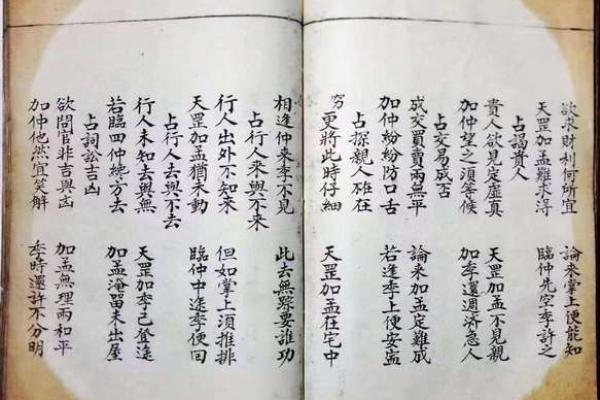 欲求財利何所宜　論來掌上便能知
天罡加孟難求淂　臨仲先空季許之
占謁貴人
貴人欲見定虛真　天罡加孟不見親
加仲望之須等候　加季還周济急人
占交易成否
成交買賣兩無平　論來加孟定難成
加仲紛紛防口舌　若逢季上便安寍
占探親人在
更將此時仔細　天罡加孟在宅中
相逢仲來季不見　此去無踪要誰功
占行人來與不來
行人出外不知來　但如掌上須推排
天罡加孟猶未動　臨仲中途季便回
占行人去與不去
行人未知去與無　天罡加季已登途
若臨四仲繞方去　加孟淹留未出屋
占詞訟吉凶
欲問官非吉與凶　加孟無理兩和平
加仲他然宜笑解　季時還許不分明